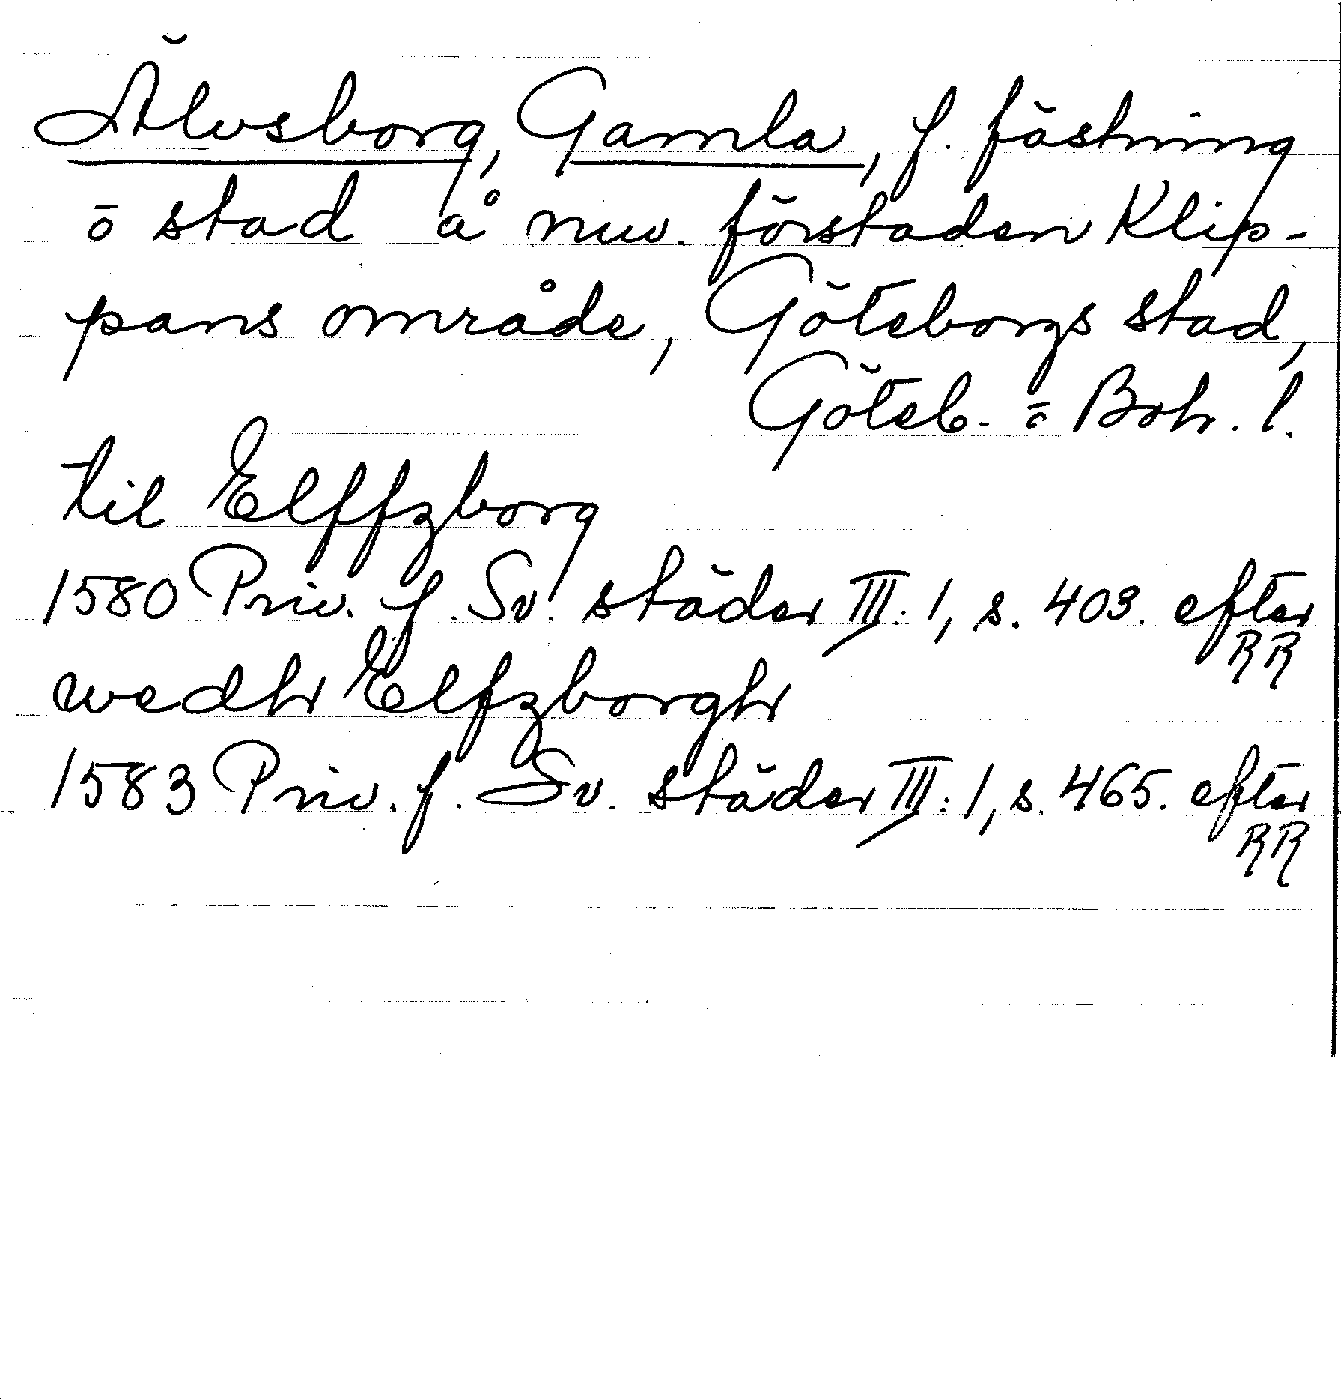 Älvsborg, Gamla, f. fästning
ō stad å nuv. förstaden Klip-
pans område, Göteborgs stad,
Göteb. ō Boh. l.
til Elffzborg
1580 Priv. f. Sv. städer III: 1, s. 403. efter
RR
wedh Elfzborgh
1583 Priv. f. Sv. städer III: 1, s. 465. efter
RR